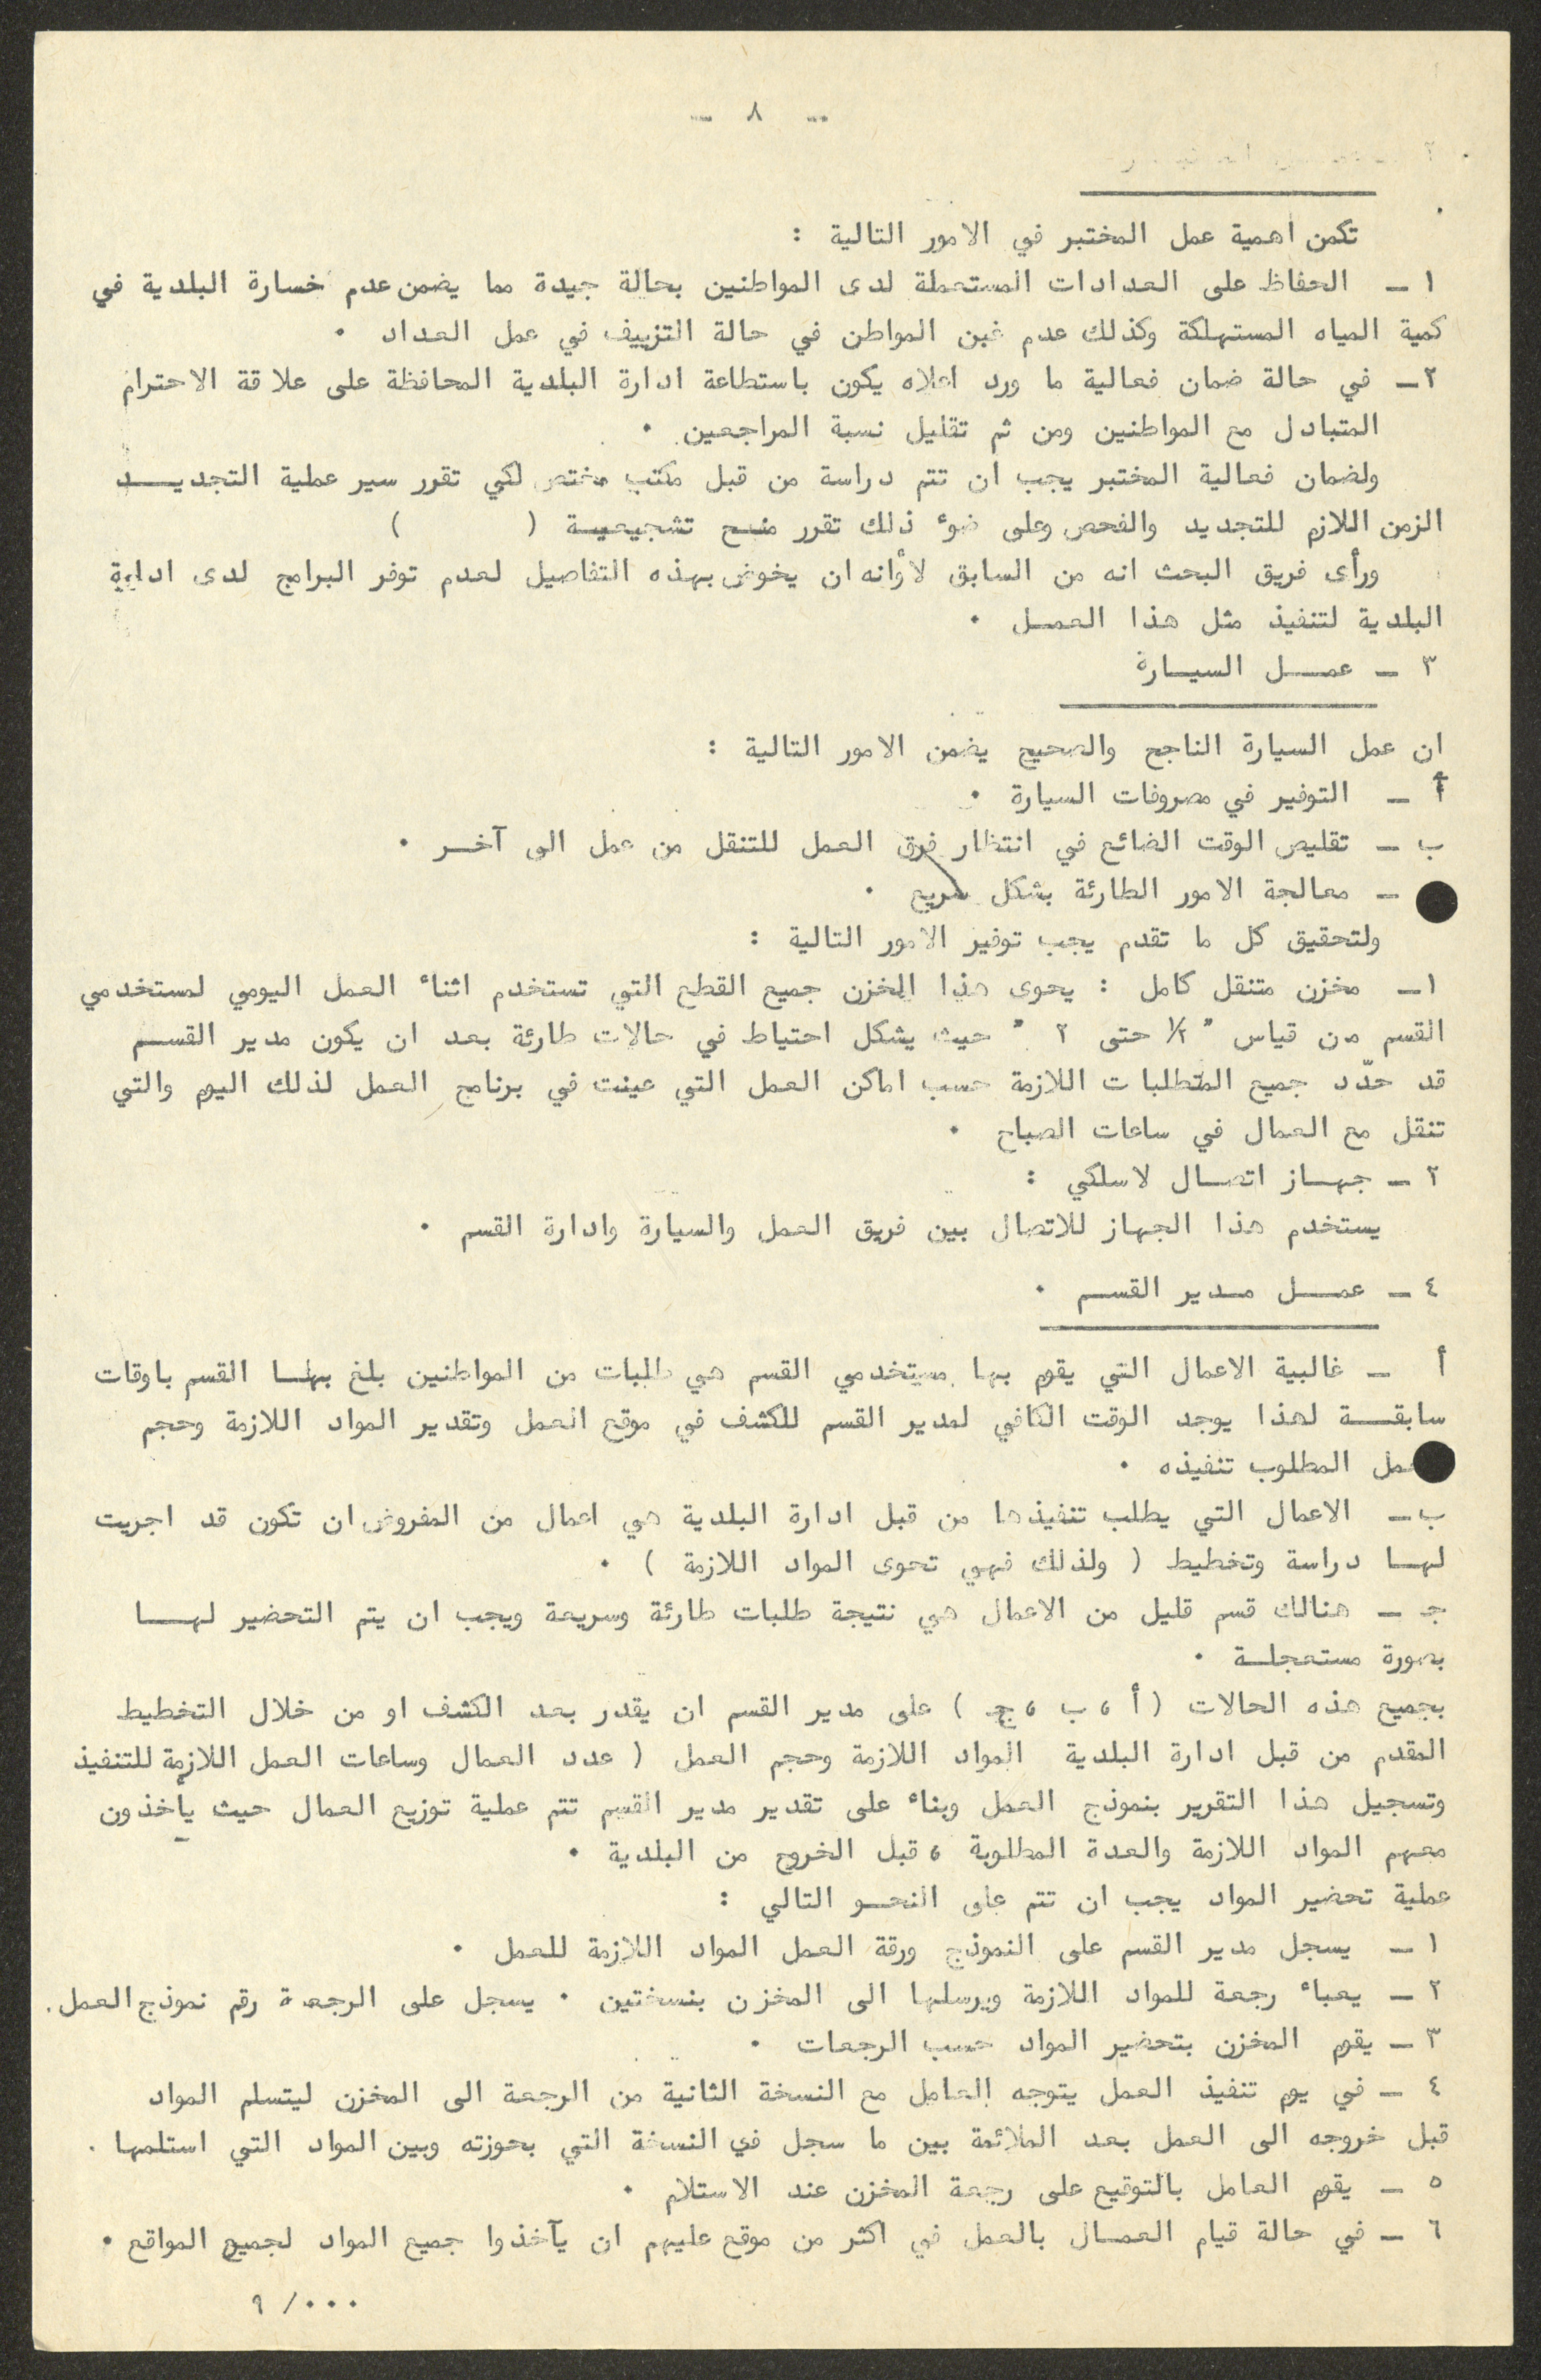 - ٨ -
٢ -
تكمن اهمية عمل المختبر في الامور التالية :
١ - الحفاظ على العدادات المستعملة لدى المواطنين بحالة جيدة مما يضمن عدم خسارة البلدية في
كمية المياه المستهلكة وكذلك عدم غبن المواطن في حالة التزييف في عمل العداد .
٢ - في حالة ضمان فعالية ما ورد اعلاه يكون باستطاعة ادارة البلدية المحافظة على علاقة الاحترام
المتبادل مع المواطنين ومن ثم تقليل نسبة المراجعين .
ولضمان فعالية المختبر يجب ان تتم دراسة من قبل مكتب مختص لكي تقرر سير عملية التجديد
الزمن اللازم للتجديد والفحص وعلى ضوء ذلك تقرر منح تشجيعية ( )
ورأى فريق البحث انه من السابق لأوانه ان يخوض بهذه التفاصيل لعدم توفر البرامج لدى ادارة
البلدية لتنفيذ مثل هذا العمل .
٣ - عمل السيارة
ان عمل السيارة الناجح والصحيح يضمن الامور التالية :
أ - التوفير في مصروفات السيارة .
ب - تقليص الوقت الضائع في انتظار فرق العمل للتنقل من عمل الى آخر .
- معالجة الامور الطارئة بشكل سريع .
ولتحقيق كل ما تقدم يجب توفير الامور التالية :
١ - مخزن متنقل كامل : يحوى هذا المخزن جميع القطع التي تستخدم اثناء العمل اليومي لمستخدمي
القسم من قياس " ١/٢ حتى ٢ " حيث يشكل احتياط في حالات طارئة بعد ان يكون مدير القسم
قد حدّد جميع المتطلبات اللازمة حسب اماكن العمل التي عينت في برنامج العمل لذلك اليوم والتي
تنقل مع العمال في ساعات الصباح .
٢ - جهاز اتصال لاسلكي :
يستخدم هذا الجهاز للاتصال بين فريق العمل والسيارة وادارة القسم .
٤ - عمل مدير القسم .
أ - غالبية الاعمال التي يقوم بها مستخدمي القسم هي طلبات من المواطنين بلغ بها القسم باوقات
سابقة لهذا يوجد الوقت الكافي لمدير القسم للكشف في موقع العمل وتقدير المواد اللازمة وحجم
عمل المطلوب تنفيذه .
ب - الاعمال التي يطلب تنفيذها من قبل ادارة البلدية هي اعمال من المفروض ان تكون قد اجريت
لها دراسة وتخطيط ( ولذلك فهي تحوى المواد اللازمة ) .
جـ - هنالك قسم قليل من الاعمال هي نتيجة طلبات طارئة وسريعة ويجب ان يتم التحضير لها
بصورة مستعجلة .
بجميع هذه الحالات ( أ ، ب ، ج ) على مدير القسم ان يقدر بعد الكشف او من خلال التخطيط
المقدم من قبل ادارة البلدية المواد اللازمة وحجم العمل ( عدد العمال وساعات العمل اللازمة للتنفيذ
وتسجيل هذا التقرير بنموذج العمل وبناء على تقدير مدير القسم تتم عملية توزيع العمال حيث يأخذون
معهم المواد اللازمة والعدة المطلوبة ، قبل الخروج من البلدية .
عملية تحضير المواد يجب ان تتم على النحو التالي :
١ - يسجل مدير القسم على النموذج ورقة العمل المواد اللازمة للعمل .
٢ - يعباء رجعة للمواد اللازمة ويرسلها الى المخزن بنسختين . يسجل على الرجعة رقم نموذج العمل .
٣ - يقوم المخزن بتحضير المواد حسب الرجعات .
٤ - في يوم تنفيذ العمل يتوجه العامل مع النسخة الثانية من الرجعة الى المخزن ليتسلم المواد
قبل خروجه الى العمل بعد الملائمة بين ما سجل في النسخة التي بحوزته وبين المواد التي استلمها .
٥ - يقوم العامل بالتوقيع على رجعة المخزن عند الاستلام .
٦ - في حالة قيام العمال بالعمل في اكثر من موقع عليهم ان يآخذوا جميع المواد لجميع المواقع .
٩ / ٠٠٠